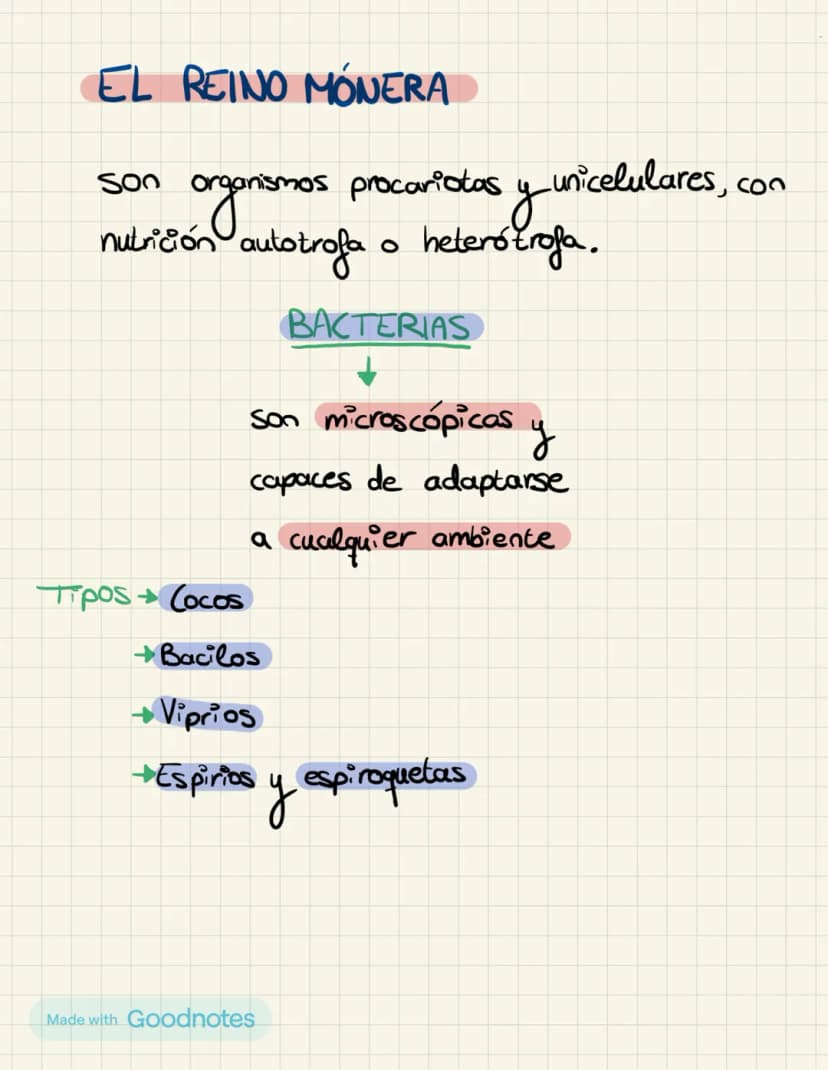 EL REINO MÓNERA
son organismos procariotas y unicelulares, con
nutrición autotrofa o heterótrofa.
BACTERIAS
↓
son microscópicas y
capaces de adaptarse
a cualquier ambiente
Tipos → Cocos
→ Bacilos
→ Viprios
→ Espirios y espiroquetas
Made with Goodnotes